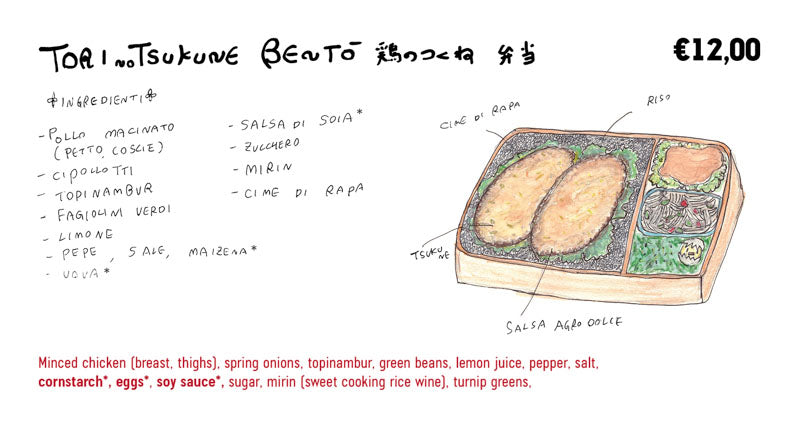 TORI no TSUKUNE BENTŌ 鶏のつくね 弁当
€12,00
INGREDIENTI
- POLLO MACINATO
(PETTO, COSCIE)
- CIPOLLOTTI
- TOPINAMBUR
- FAGIOLINI VERDI
- LIMONE
- PEPE, SALE, MAIZENA*
- UOVA*
- SALSA DI SOIA*
- ZUCCHERO
- MIRIN
- CIME DI RAPA
CIME DI RAPA
RISO
TSUKU
NE
SALSA AGRODOLCE
Minced chicken (breast, thighs), spring onions, topinambur, green beans, lemon juice, pepper, salt,
cornstarch*, eggs*, soy sauce*, sugar, mirin (sweet cooking rice wine), turnip greens,